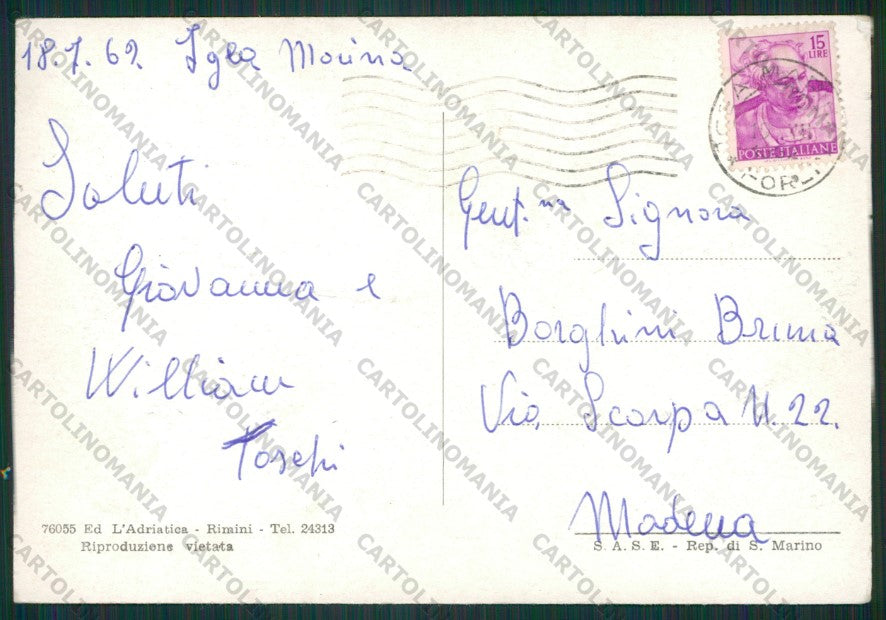 18.7.62 Igea Marina
Saluti
Giovanna e
William
Toschi
15
LIRE
POSTE ITALIANE
IGEA MARINA
FORLI
Gent.ma Signora
Borghini Bruna
Via Scarpa N. 22.
Modena
76055 Ed L'Adriatica - Rimini - Tel. 24313
Riproduzione vietata
S. A. S. E. - Rep. di S. Marino
CARTOLINOMANIA